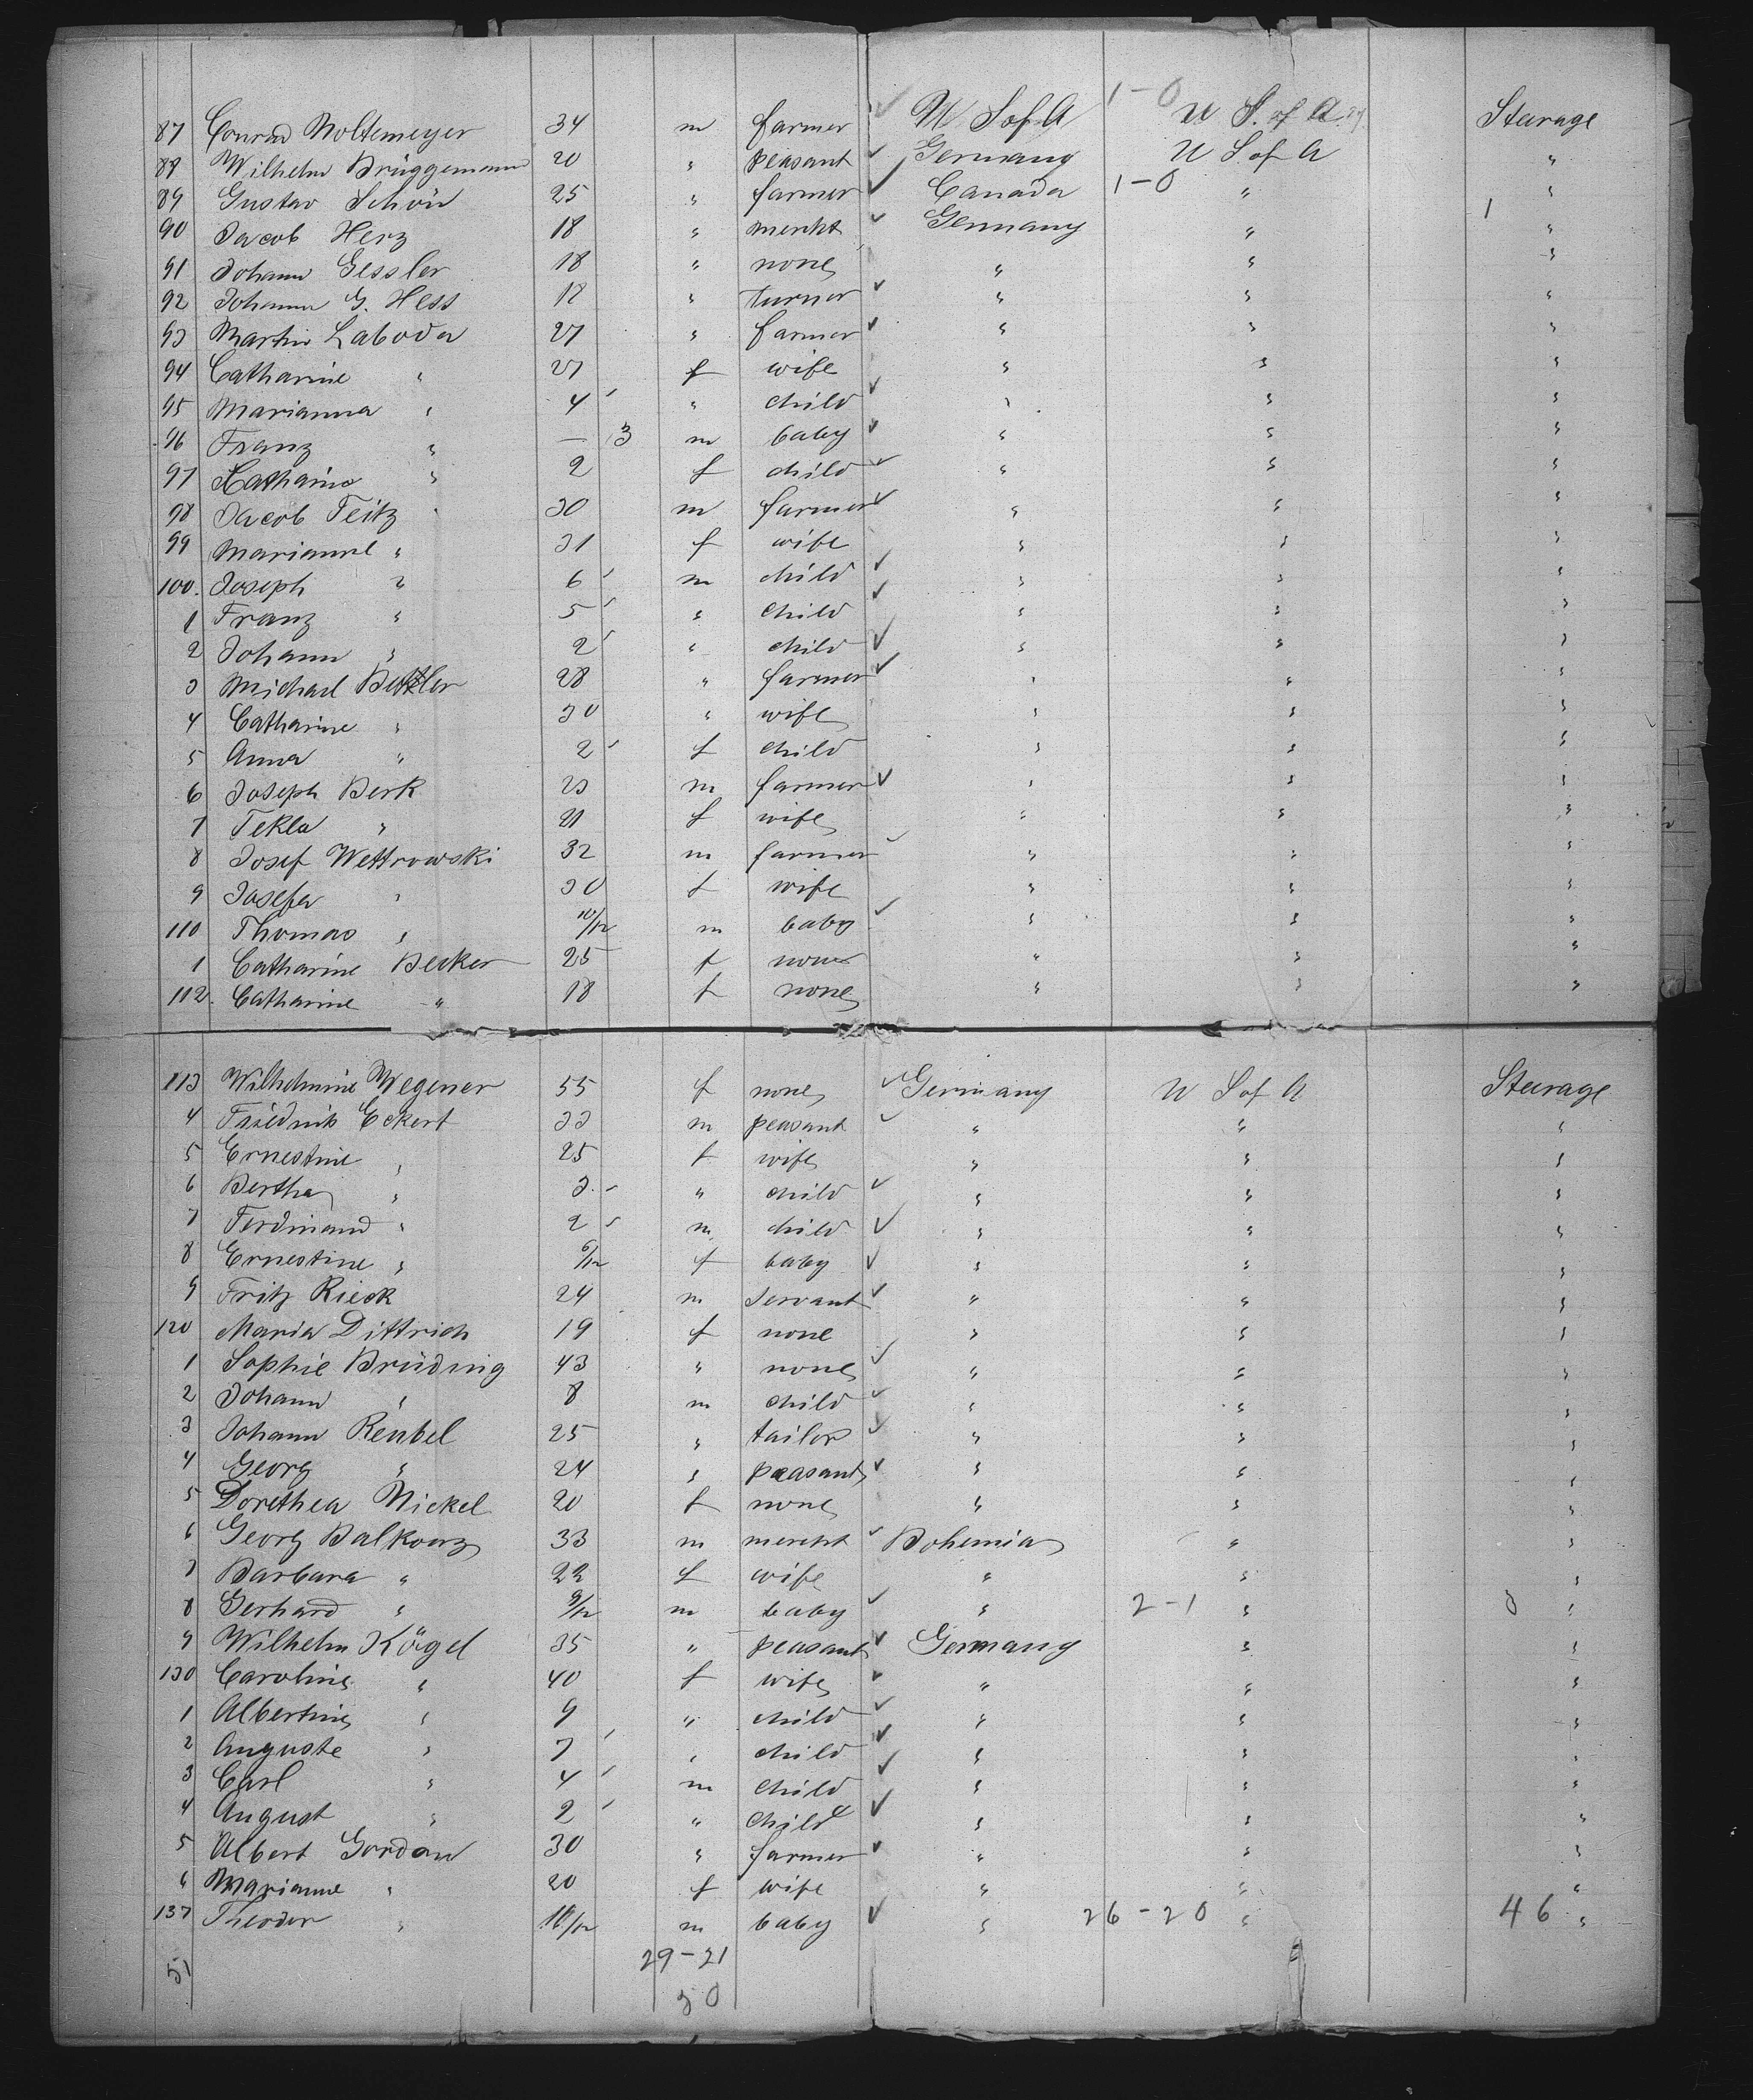 87 Conrad Woltemeyer 34 m farmer ✓ U S of A 1-0 U S. of A. Steerage
88 Wilhelm Brüggemann 20 " peasant ✓ Germany U S of A "
89 Gustav Schön 25 " farmer ✓ Canada 1-0 " "
90 Jacob Herz 18 " mercht ✓ Germany " 1 "
91 Johann Gessler 18 " none " " "
92 Johann G. Hess 18 " turner ✓ " " "
93 Martin Laboda 27 " farmer ✓ " " "
94 Catharine " 27 f wife " " "
95 Marianna " 4 " child ✓ " " "
96 Franz " — 3 m baby ✓ " " "
97 Katharina " 2 f child ✓ " " "
98 Jacob Teitz 30 m farmer ✓ " " "
99 Marianne " 31 f wife " " "
100. Joseph " 6 m child ✓ " " "
1 Franz " 5 " child ✓ " " "
2 Johann " 2 " child ✓ " " "
3 Michael 28 " farmer ✓ " " "
4 Catharine " 30 " wife " " "
5 Anna " 2 f child " " "
6 Joseph Berk 23 m farmer ✓ " " "
7 Tekla " 21 f wife " " "
8 Josef Wettrowski 32 m farmer ✓ " " "
9 Josefa " 30 f wife " " "
110 Thomas " 10/12 m baby ✓ " " "
1 Catharine Becker 25 f none " " "
112. Catharine " 18 f none " " "
113 Wilhelmine Wegener 55 f none ✓ Germany U S of A Steerage
4 Friedrich Eckert 33 m peasant ✓ " " "
5 Ernestine " 25 f wife " " "
6 Bertha " 3 " child ✓ " " "
7 Ferdinand " 2 m child ✓ " " "
8 Ernestine " 6/12 f baby ✓ " " "
9 Fritz Rieck 24 m servant ✓ " " "
120 Maria Dittrich 19 f none " " "
1 Sophie Brüding 43 " none ✓ " " "
2 Johann " 8 m child ✓ " " "
3 Johann Reubel 25 " tailor ✓ " " "
4 Georg " 24 " peasant ✓ " " "
5 Dorethea Nickel 20 f none " " "
6 Georg Balkovrz 33 m mercht ✓ Bohemia " "
7 Barbara " 22 f wife " " "
8 Gerhard " 9/12 m baby ✓ " 2-1 " 3 "
9 Wilhelm Kögel 35 " peasant ✓ Germany " "
130 Caroline " 40 f wife ✓ " " "
1 Albertine " 9 " child ✓ " " "
2 Auguste " 7 " child ✓ " " "
3 Carl " 4 m child ✓ " " "
4 August " 2 " child ✓ " " "
5 Albert Gordan 30 " farmer ✓ " " "
6 Marianne " 20 f wife " " "
137 Theodor " 10/12 m baby ✓ " 26-20 " 46 "
51 29-21
30